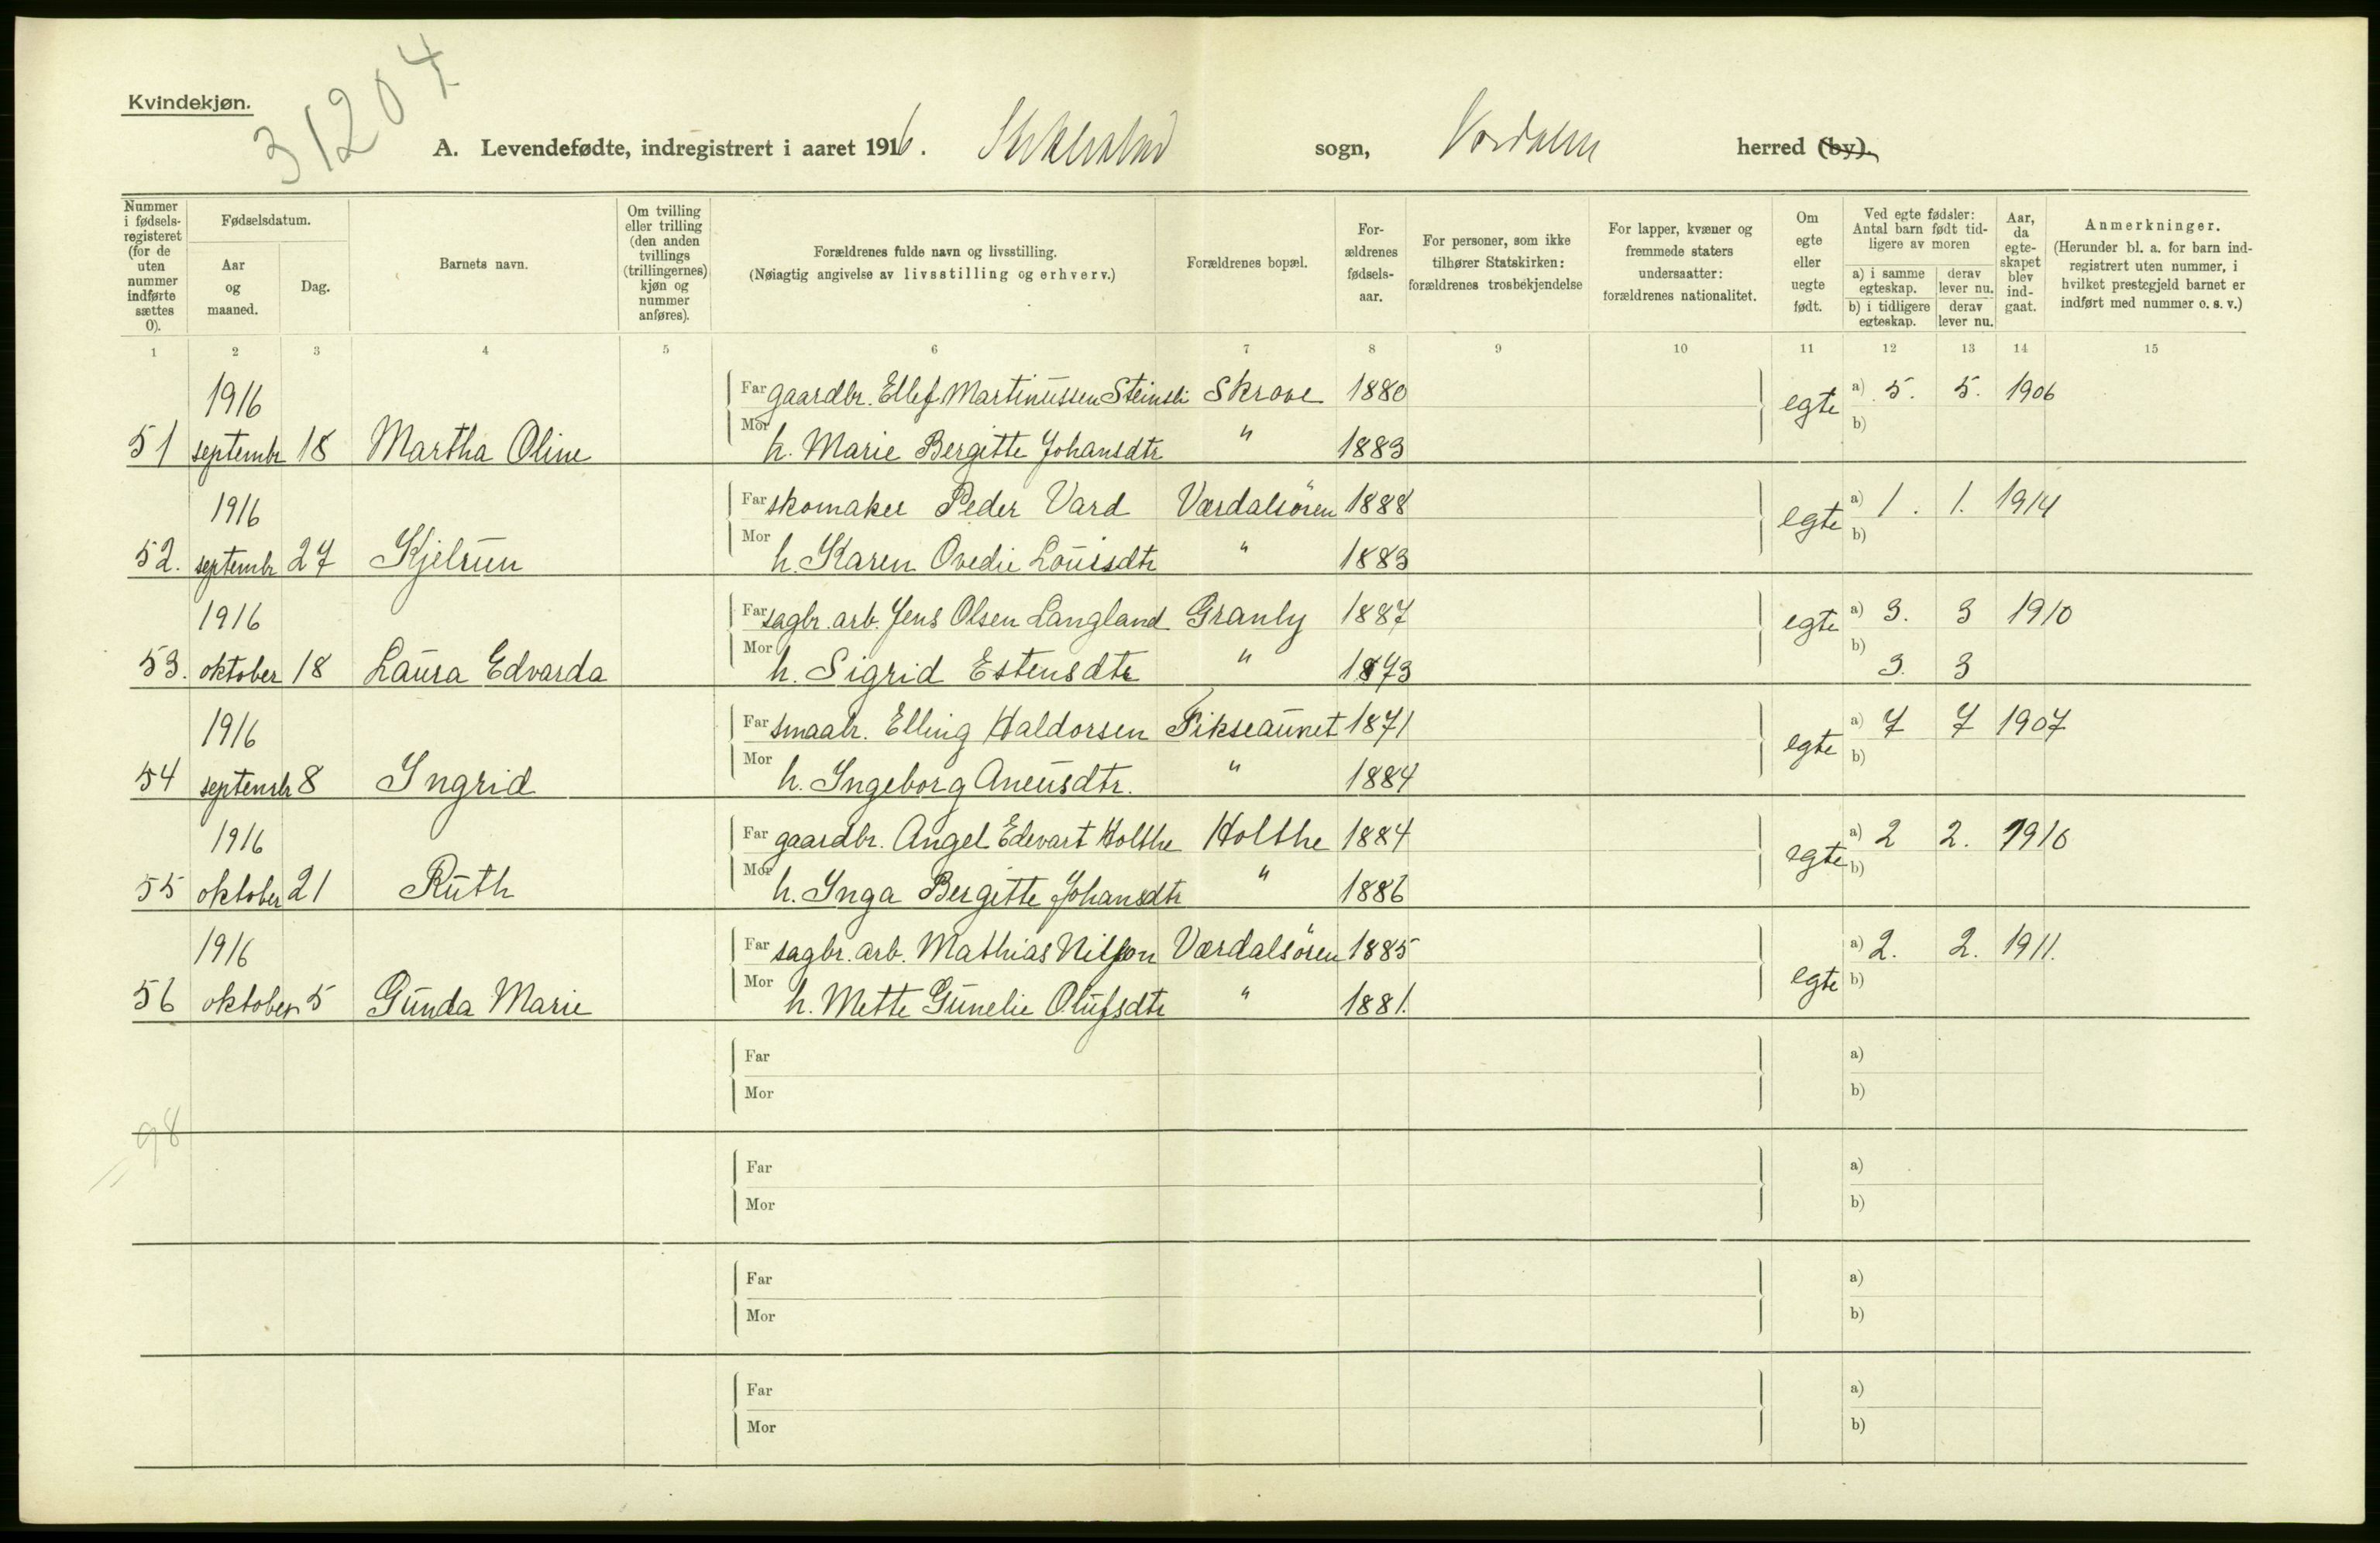 Kvindekjøn.
31204
A. Levendefødte, indregistrert i aaret 1916. Stiklestad sogn, Værdalen herred (by).
Nummer i fødsels-registeret (for de uten nummer indførte sættes 0).
Fødselsdatum.
Aar og maaned.
Dag.
Barnets navn.
Om tvilling eller trilling (den anden tvillings (trillingernes) kjøn og nummer anføres).
Forældrenes fulde navn og livsstilling.
(Nøiagtig angivelse av livsstilling og erhverv.)
Forældrenes bopæl.
For-ældrenes fødsels-aar.
For personer, som ikke tilhører Statskirken: forældrenes trosbekjendelse
For lapper, kvæner og fremmede staters undersaatter: forældrenes nationalitet.
Om egte eller uegte født.
Ved egte fødsler: Antal barn født tid-ligere av moren
a) i samme egteskap.
derav lever nu.
b) i tidligere egteskap.
derav lever nu.
Aar, da egte-skapet blev ind-gaat.
Anmerkninger.
(Herunder bl. a. for barn ind-registrert uten nummer, i hvilket prestegjeld barnet er indført med nummer o. s. v.)
1 2 3 4 5 6 7 8 9 10 11 12 13 14 15
1916 Far gaardbr. Ellef Martinussen Steinsli Skrove 1880 egte a) 5. 5. 1906
51 septembr 18 Martha Oline Mor h. Marie Bergitte Johansdtr " 1883 b)
1916 Far skomaker Peder Vard Værdalsören 1888 egte a) 1. 1. 1914
52. septembr 27 Kjelrun Mor h. Karen Ovedie Louisdtr " 1883 b)
1916 Far sagbr. arb. Jens Olsen Langland Granly 1887 egte a) 3. 3 1910
53. oktober 18 Laura Edvarda Mor h. Sigrid Estensdtr " 1873 b) 3. 3
1916 Far smaabr. Elling Haldorsen Fikseaunet 1871 egte a) 7 7 1907
54 septembr 8 Ingrid Mor h. Ingeborg Aneusdtr. " 1884 b)
1916 Far gaardbr. Angel Edevart Holthe Holthe 1884 egte a) 2 2. 1910
55 oktober 21 Ruth Mor h. Inga Bergitte Johansdtr " 1886 b)
1916 Far sagbr. arb. Mathias Nilsson Værdalsören 1885 egte a) 2. 2. 1911.
56 oktober 5 Gunda Marie Mor h. Mette Gunelie Olufsdtr " 1881. b)
Far a)
Mor b)
98
Far a)
Mor b)
Far a)
Mor b)
Far a)
Mor b)